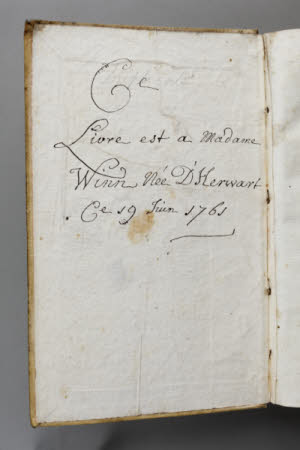 Ce
Livre est a Madame
Winn Née D'Herwart
Ce 19 Juin 1761